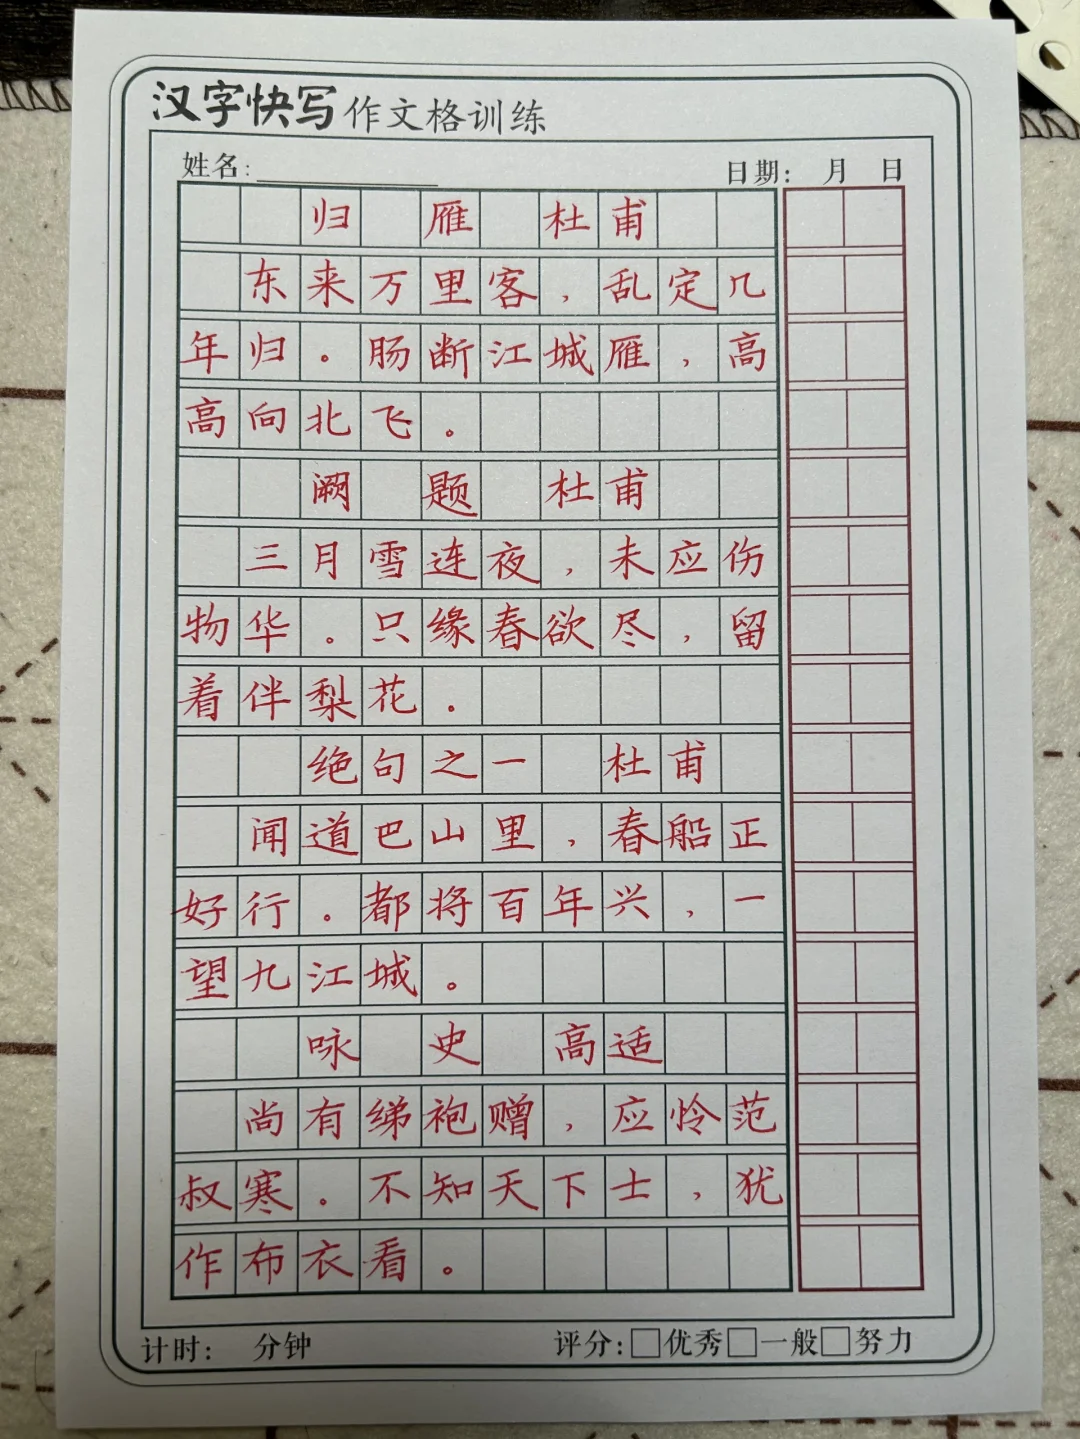 汉字快写作文格训练
姓名: 日期: 月 日
归 雁 杜甫
东来万里客，乱定几
年归。肠断江城雁，高
高向北飞。
阙 题 杜甫
三月雪连夜，未应伤
物华。只缘春欲尽，留
着伴梨花。
绝句之一 杜甫
闻道巴山里，春船正
好行。都将百年兴，一
望九江城。
咏 史 高适
尚有绨袍赠，应怜范
叔寒。不知天下士，犹
作布衣看。
计时: 分钟 评分:□优秀□一般□努力